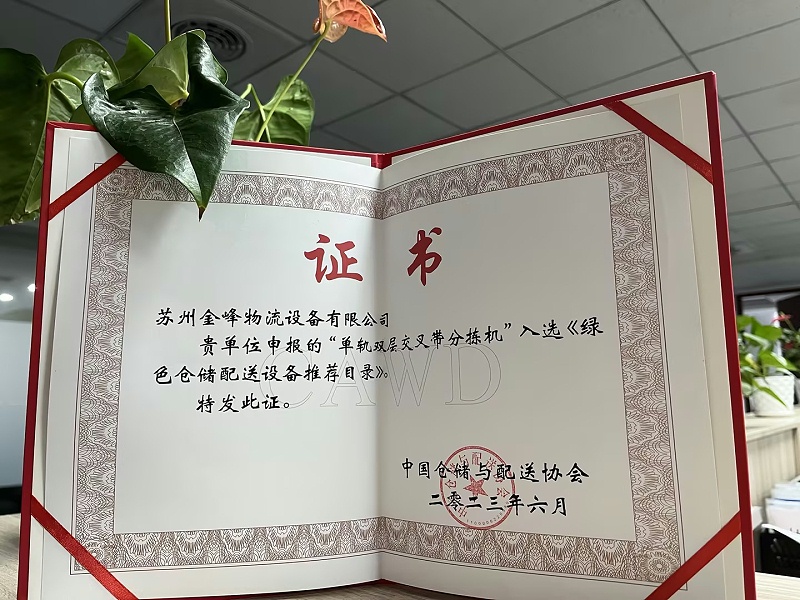 证书
苏州金峰物流设备有限公司
贵单位申报的“单轨双层交叉带分拣机”入选《绿
色仓储配送设备推荐目录》。
特发此证。
CAWD
中国仓储与配送协会
二零二三年六月